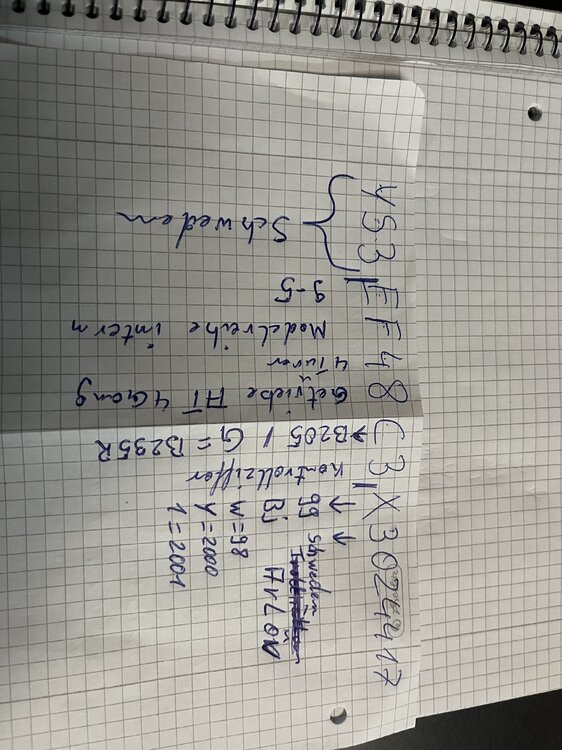 YS3EF48C3X3024417
Schweden
9-5
Modelreihe intern
4 Türer
Getriebe AT 4Gang
→B205 / G = B235R
Kontrollziffer
↓ 99
BJ
W=98
Y=2000
1=2001
↓ Schweden
Arlöv